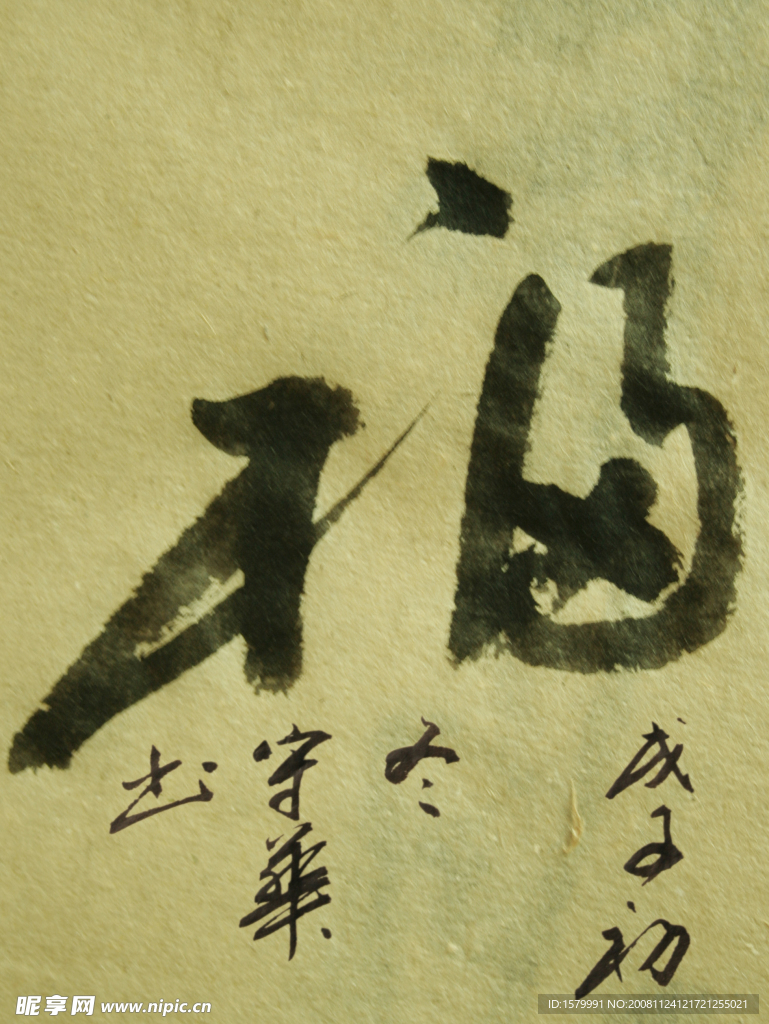 福
戊子初
冬
守華
书
昵享网 www.nipic.cn
ID:1579991 NO:20081124121721255021